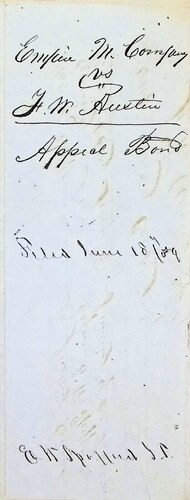 Empire M. Company
vs
F. W. Austin
Appeal Bond
Filed June 18th
E W Spofford J.P.